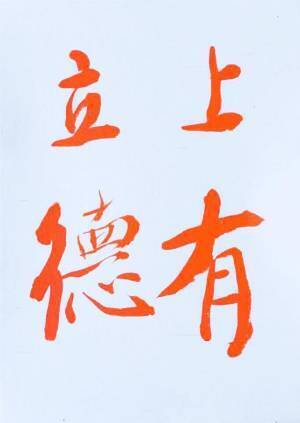 上有
立德